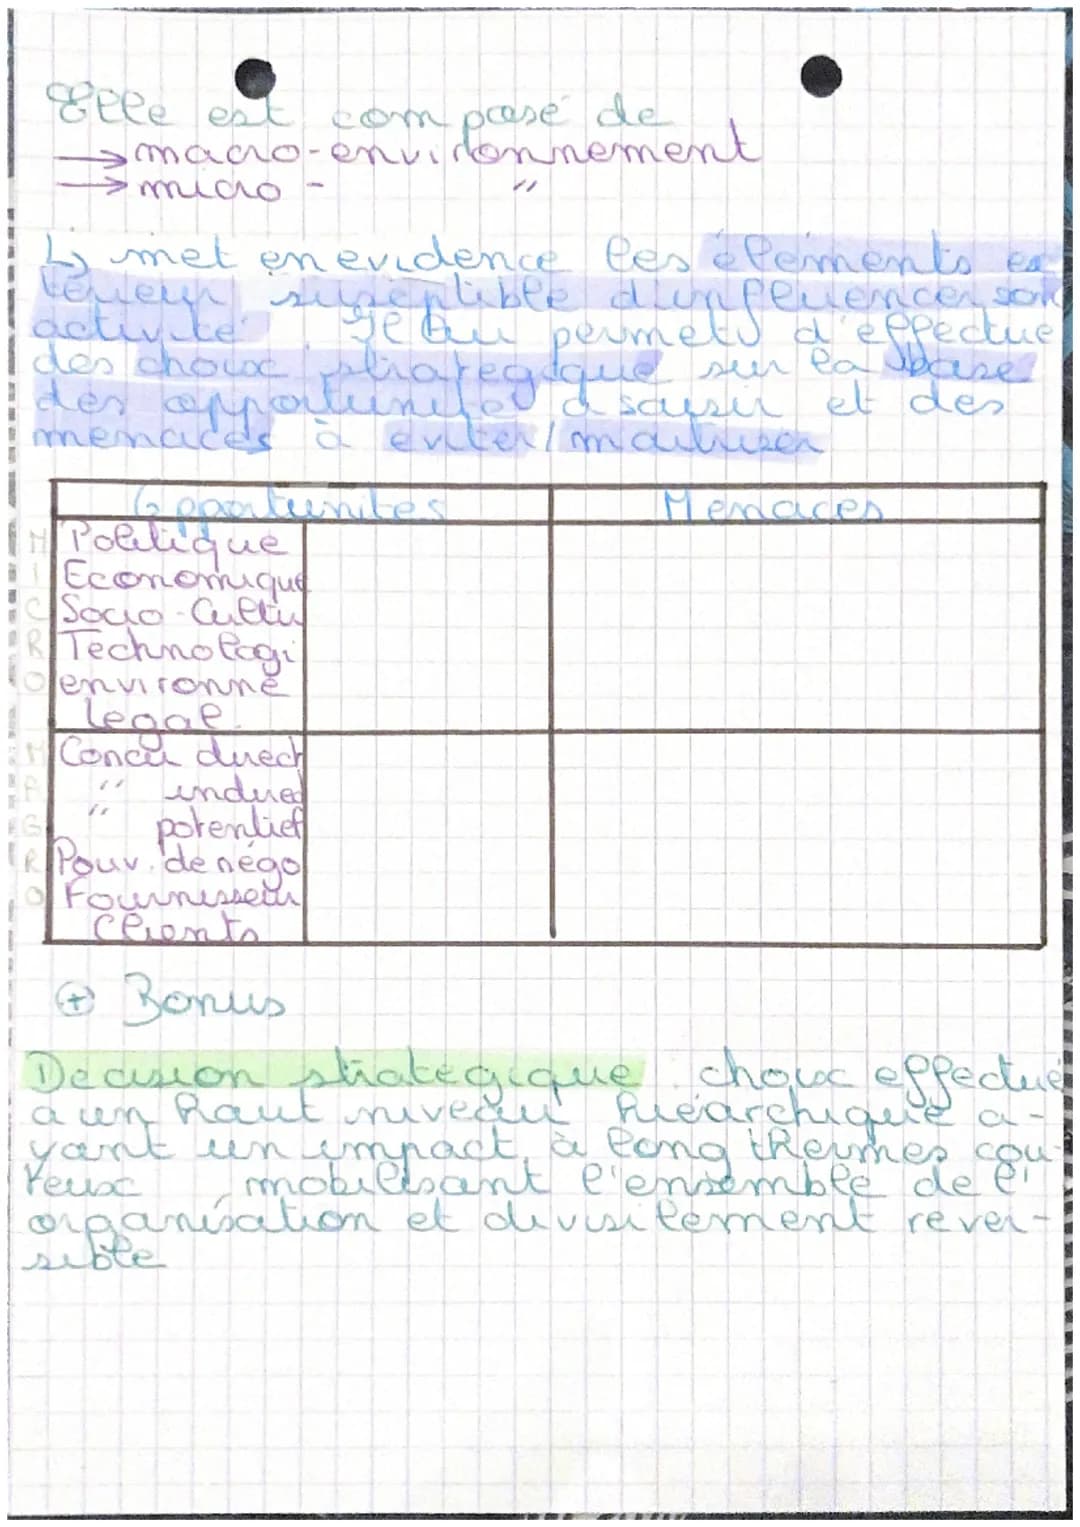 Elle est composé de
→ macro-environnement
→ micro - "
↳ met en evidence les élements ex
terieur suseptible d'influencer son
activité Il lui permets d'effectue
des choix strategique sur la base
des opportunites a saisir et des
menaces à eviter/maitriser
Opportunites Menaces
MICRO
Politique
Economique
Socio-Cultu
Technologi
environne
legal.
MACRO
Concu direct
" indirec
" potentiel
Pouv. de négo
Fournisseur
Clients
+ Bonus
Decision strategique : choix effectué
a un haut niveau hiéarchique a-
yant un impact à long thermes cou-
teux mobilisant l'ensemble de l'
organisation et divisilement rever-
sible